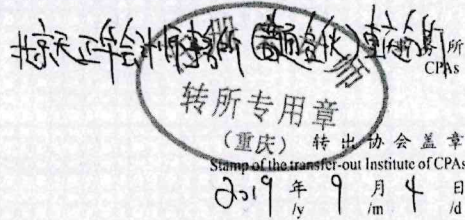 北京天正华会计师事务所（普通合伙）重庆分所 事务所
CPAs
师
转所专用章
（重庆） 转出协会盖章
Stamp of the transfer-out Institute of CPAs
2019 年 9 月 4 日
/y /m /d